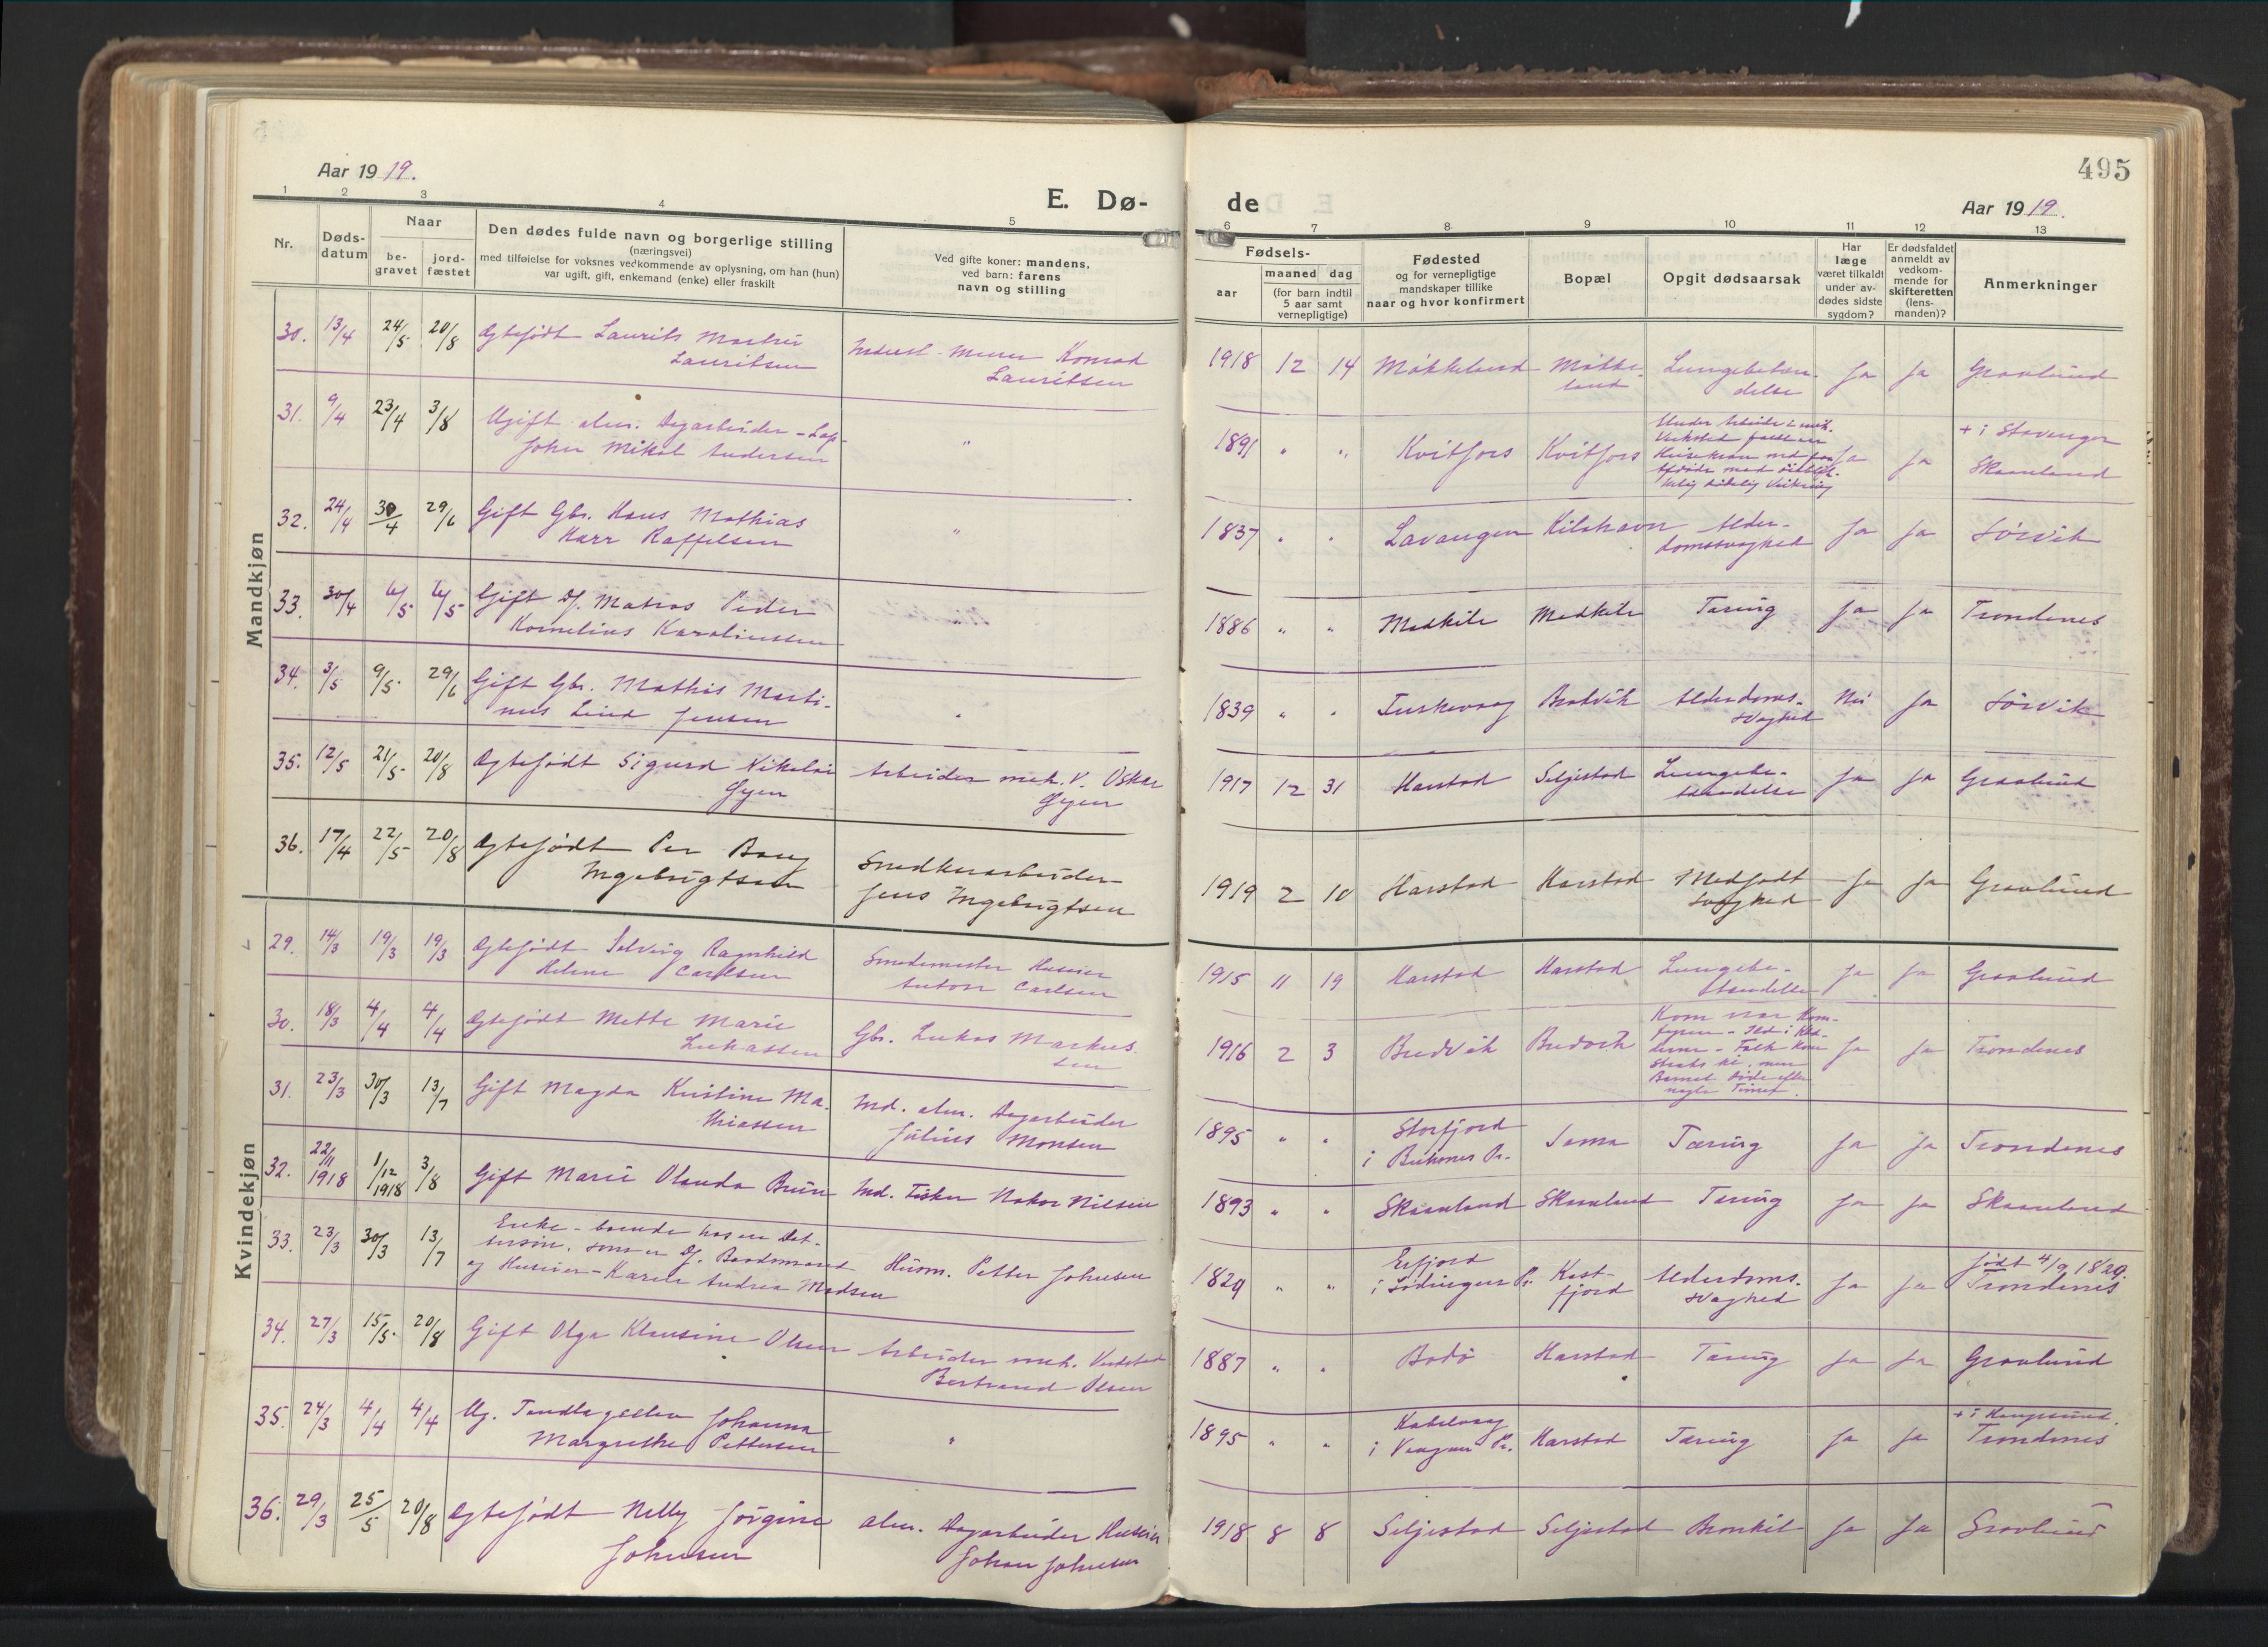 495
Aar 1919.
E. Dø-
de
Aar 1919.
1 2 3 4 5 6 7 8 9 10 11 12 13
Nr.
Døds-
datum
Naar
be-
gravet
jord-
fæstet
Den dødes fulde navn og borgerlige stilling
(næringsvei)
med tilføielse for voksnes vedkommende av oplysning, om han (hun)
var ugift, gift, enkemand (enke) eller fraskilt
Ved gifte koner: mandens,
ved barn: farens
navn og stilling
Fødsels-
aar
maaned dag
(for barn indtil
5 aar samt
vernepligtige)
Fødested
og for vernepligtige
mandskaper tillike
naar og hvor konfirmert
Bopæl
Opgit dødsaarsak
Har
læge
været tilkaldt
under av-
dødes sidste
sygdom?
Er dødsfaldet
anmeldt av
vedkom-
mende for
skifteretten
(lens-
manden)?
Anmerkninger
Mandkjøn
30. 13/4 24/5 20/8 Ægtefødt Laurits Martin
Lauritsen
Murer Konrad
Lauritsen
1918 12 14 Møkkeland Møkke-
land
Lungebetæn-
delse
Ja Ja Gravlund
31. 9/4 23/4 3/8 Ugift alm. Dagarbeider - Lap -
Johan Mikal Andersen
"
1891 " " Kvitfors Kvitfors
Ja Ja + i Stavanger
Skaanland
32. 24/4 30/4 29/6 Gift Gbr. Hans Mathias
Karr Raffelsen
"
1837 " " Lavangen Kilahavn Alder-
domssvaghed
Ja Ja Sørvik
33. 30/4 6/5 6/5 Gift Df. Matros Peder
Kornelius Karoliussen
"
1886 " " Medkila Medkila Tæring Ja Ja Trondenes
34. 3/5 9/5 29/6 Gift Gbr. Mathis Marti-
nus Lind Jensen
"
1839 " " Tuskevaag Brodvik Alderdoms-
svaghed
Nei Ja Sørvik
35. 12/5 21/5 20/8 Ægtefødt Sigurd Nikolai
Gyen
Arbeider mek. V. Oskar
Gyen
1917 12 31 Harstad Seljestad Lungebe-
tændelse
Ja Ja Gravlund
36. 17/4 22/5 20/8 Ægtefødt Per Bang
Ingebrigtsen
Snedkerarbeider
Jens Ingebrigtsen
1919 2 10 Harstad Harstad Medfødt
svaghed
Ja Ja Gravlund
Kvindekjøn
29. 14/3 19/3 19/3 Ægtefødt Solveig Ragnhild
Helene Carlsen
Smedemester Huseier
Anton Carlsen
1915 11 19 Harstad Harstad Lungebe-
tændelse
Ja Ja Gravlund
30. 18/3 4/4 4/4 Ægtefødt Mette Marie
Lukassen
Gbr. Lukas Markus-
sen
1916 2 3 Bredvik Bredvik
Kom nær Kom-
fyren - Ild i Klæ-
derne - Folk kom
straks til, men
Barnet døde efter
nogle Timer.
Ja Ja Trondenes
31. 23/3 30/3 13/7 Gift Magda Kristine Ma-
thiassen
Ind. alm. Dagarbeider
Julius Monsen
1895 " " Storfjord
i Pr.
Sama Tæring Ja Ja Trondenes
32. 22/11 1918 1/12 1918 3/8 Gift Marie Olanda Brun
Ind. Fisker Hakon Nilsen
1893 " " Skaanland Skaanland Tæring Ja Ja Skaanland
33. 23/3 30/3 13/7 Enke - boende hos en Dat-
tersøn, som er Df. Baadsmand
og Huseier - Karen Andrea Madsen
Husm. Petter Johnsen
1829 " " Erfjord
i Lødingen Pr.
Kast-
fjord
Alderdoms-
svaghed
Ja Ja født 4/9 1829.
Trondenes
34. 27/3 15/5 20/8 Gift Olga Klausine Olsen
Arbeider mek. Verksted
Bertrand Olsen
1887 " " Bodø Harstad Tæring Ja Ja Gravlund
35. 24/3 4/4 4/4 Ug. Johanna
Margrethe Pettersen
"
1895 " " Kabelvaag
i Vaagan Pr.
Harstad Tæring Ja Ja
Trondenes
36. 29/3 25/5 20/8 Ægtefødt Nelly Jørgine
Johnsen
alm. Dagarbeider Huseier
Johan Johnsen
1918 8 8 Seljestad Seljestad Bronkit Ja Ja Gravlund